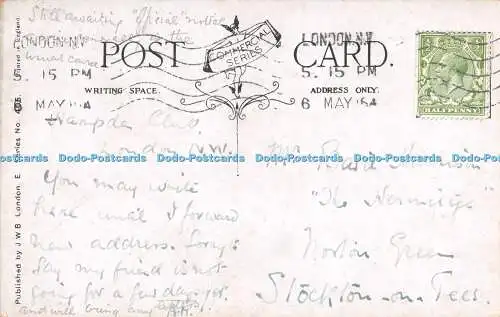 Still awaiting "Official" notice
usual course
LONDON.N.W
5. 15 PM
6 MAY
POST CARD.
COMMERCIAL
SERIES
LONDON.N.W
5. 15 PM
6 MAY
WRITING SPACE.
ADDRESS ONLY.
HALFPENNY
Printed in England.
Published by J W B London, E. Series No.
Hampden Club
London N.W.
You may write
here until I forward
new address. Sorry to
say my friend is not
going for a few days yet
and will bring any
A.H.
Mr
"The Hermitage"
Norton Green
Stockton-on-Tees.
Dodo-Postcards Dodo-Postcards Dodo-Postcards Dodo-Postcards